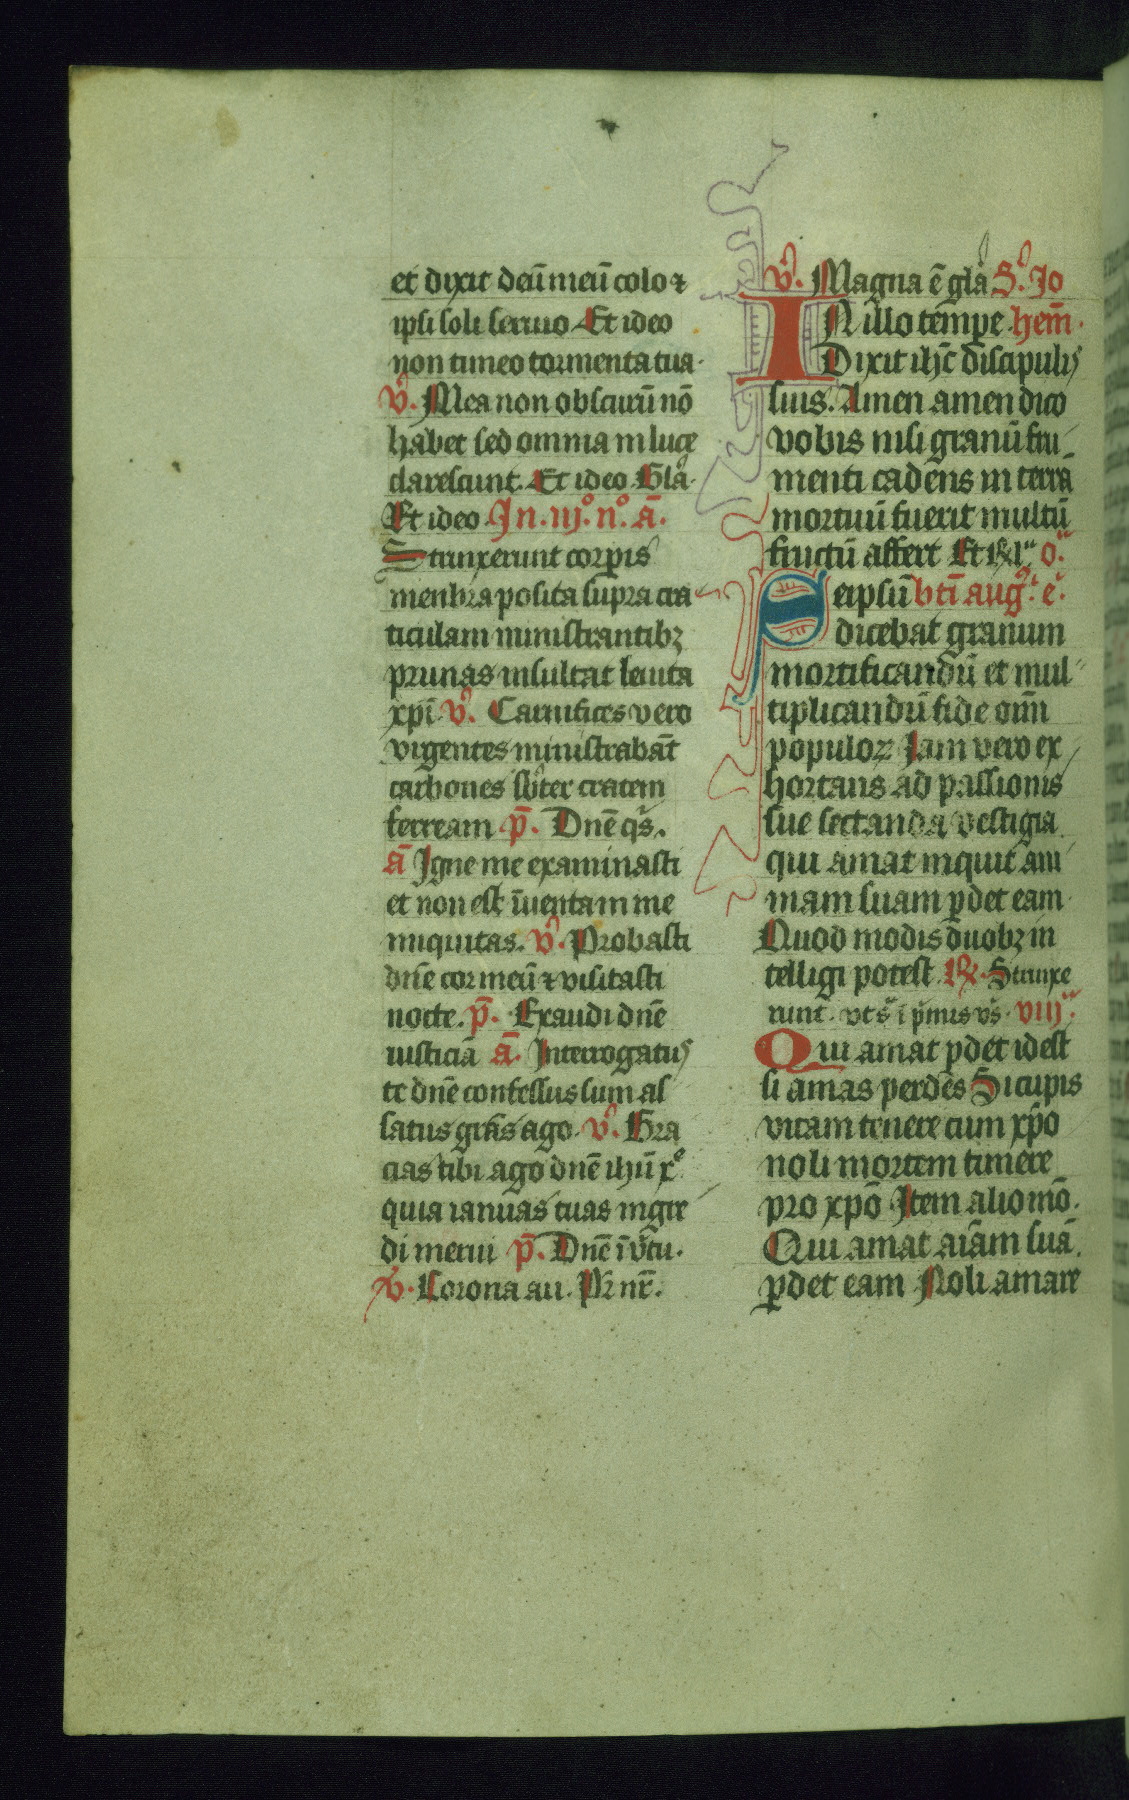 et dixit deū meū colo ⁊
ipsi soli seruio Et ideo
non timeo tormenta tua·
v̊. Mea non obscurū nō
habet sed omnia in luce
clarescunt. Et ideo Gla᷒
Et ideo Jn .iij.° n.° ā.
Strinxerunt corꝑis
menbra posita supra cra
ticulam ministrantibꝫ
prunas insultat leuita
xp̄i v̊. Carnifices vero
vrgentes ministrabāt
carbones sb̓ter cratem
ferream p̄. Dnē qͥs.
ā Jgne me examinasti
et non est īuenta in me
iniquitas. v̊. Probasti
dnē cor meū ⁊ visitasti
nocte. p̄. Exaudi dnē
iusticiā ā. Jnterrogatus
te dnē confessus sum as
satus grās ago. v̊. Gra
cias tibi ago dnē ihū xͤ
quia ianuas tuas ingre
di merui p̄. Dnē ī v̓tu.
v̊. Corona au. Pr̄ nr̄.
v̊. Magna ē gla᷒ S.° Jo
IN illo temꝑe hem̄·
Dixit ihc̄ discipulis
suis. Amen amen dico
vobis nisi granū fru
menti cadens in terrā
mortuū fuerit multū
fructū affert Et rͣlͣ o.ͣ
Seipsū bti᷒ augͥ.ͥ eͥ.
dicebat granum
mortificandū et mul
tiplicandū fide om̄
populoꝝ Jam vero ex
hortans ad passionis
sue sectanda vestigia
qui amat inquit ani
mam suam ꝑdet eam
Quod modis duobꝫ in
telligi potest ℟. Strinxe
runt. vt sͣ i p̓mis vs̓. viijͣ.
Qui amat ꝑdet idest
si amas perdes Si cupis
vitam tenere cum xp̄o
noli mortem timere
pro xp̄o Jtem alio mō.
Qui amat aīam suā
ꝑdet eam Noli amare